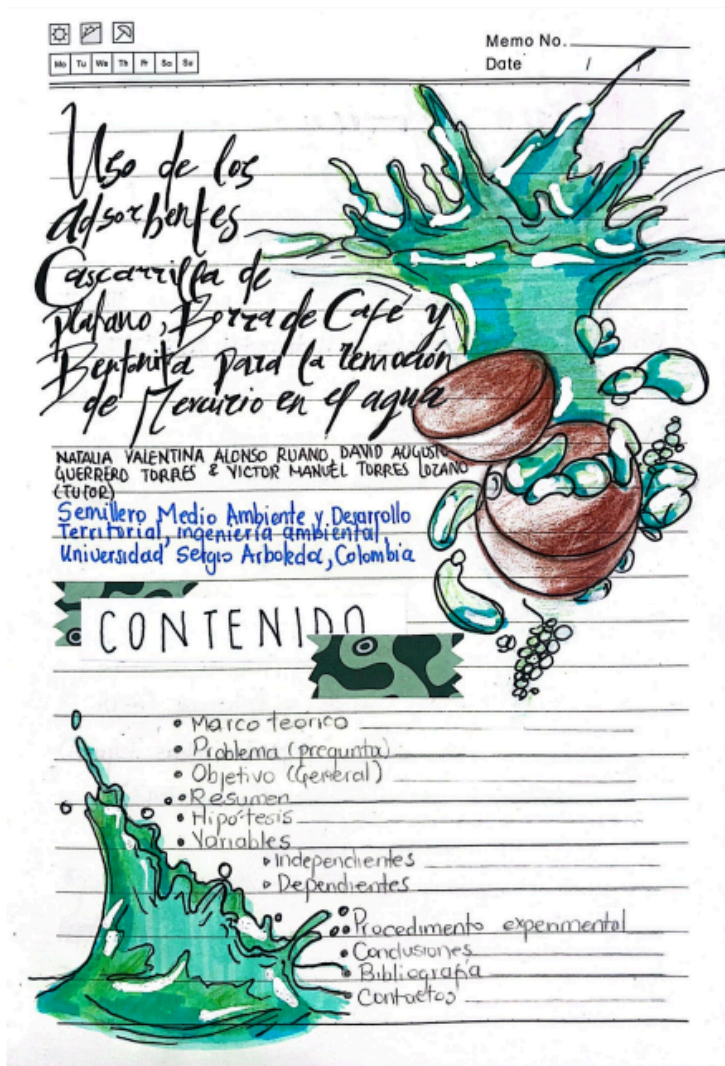 Memo No.
Date / /
Mo Tu We Th Fr Sa Su
Uso de los
adsorbentes
Cascarilla de
platano, Borra de Café y
Bentonita para la remoción
de Mercurio en el agua
NATALIA VALENTINA ALONSO RUANO, DAVID AUGUSTO
GUERRERO TORRES & VICTOR MANUEL TORRES LOZANO
(TUTOR)
Semillero Medio Ambiente y Desarrollo
Territorial, ingeniería ambiental,
Universidad Sergio Arboleda, Colombia
CONTENIDO
• Marco teórico
• Problema (pregunta)
• Objetivo (General)
• Resumen
• Hipótesis
• Variables
▹ Independientes
▹ Dependientes
• Procedimento experimental
• Conclusiones
• Bibliografía
• Contactos